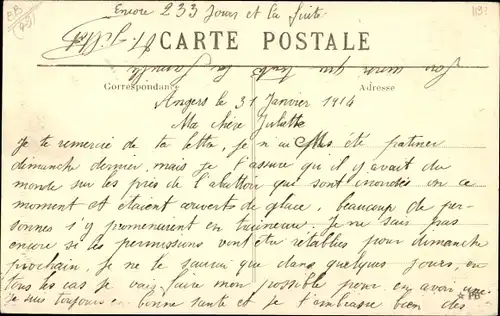 Encore 233 jours et la fuite
CARTE POSTALE
Correspondance
Adresse
Angers le 31 Janvier 1914
Ma chère Juliette
Je te remercie de ta lettre, je n'ai pas été patiner
dimanche dernier, mais je t'assure qu'il y avait du
monde sur les prés de l'abattoir qui sont inondés en ce
moment et étaient couverts de glace, beaucoup de per-
sonnes s'y promenaient en traineau. Je ne sais pas
encore si les permissions vont être rétablies pour dimanche
prochain, je ne le saurai que dans quelques jours, en
tous les cas je vais faire mon possible pour en avoir une
Je suis toujours en bonne santé et je t'embrasse bien des